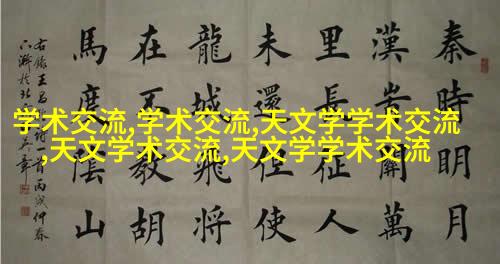 秦時明月
漢旹關萬
里長征人
未還但使
龍城飛將
在不教胡
馬度陰山
右錄王昌一首丙戌仲春
学术交流,学术交流,天文学学术交流
,天文学术交流,天文学学术交流